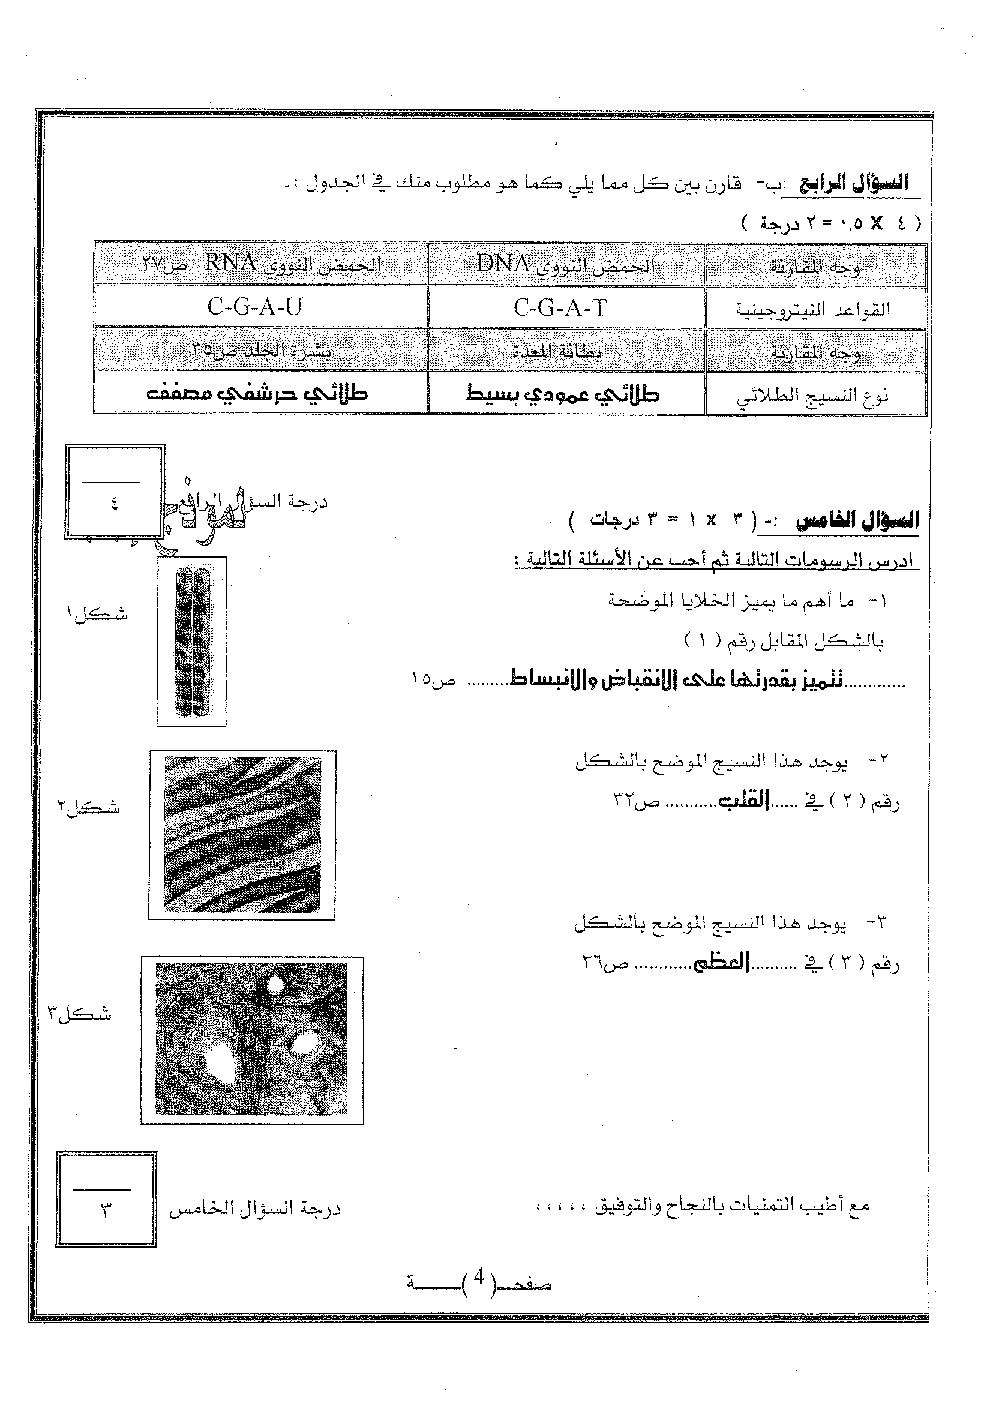 السؤال الرابع :ب- قارن بين كل مما يلي كما هو مطلوب منك في الجدول :-
( ٤ X ٠,٥ = ٢ درجة )
وجه المقارنة الحمض النووي DNA الحمض النووي RNA ص٢٧
القواعد النيتروجينية C-G-A-T C-G-A-U
وجه المقارنة بطانة المعدة بشرة الجلد ص٣٥
نوع النسيج الطلائي طلائي عمودي بسيط طلائي حرشفي مصفف
درجة السؤال الرابع
٤
السؤال الخامس :- ( ٣ x ١ = ٣ درجات )
ادرس الرسومات التالية ثم أجب عن الأسئلة التالية :
١- ما أهم ما يميز الخلايا الموضحة
بالشكل المقابل رقم ( ١ )
............تتميز بقدرتها على الانقباض والانبساط......... ص١٥
شكل١
٢- يوجد هذا النسيج الموضح بالشكل
رقم ( ٢ ) في ......القلب........... ص٣٢
شكل٢
٣- يوجد هذا النسيج الموضح بالشكل
رقم ( ٣ ) في ..........العظم............ ص٣٦
شكل٣
مع أطيب التمنيات بالنجاح والتوفيق ،،،،،
درجة السؤال الخامس
٣
صفحـــ( 4 )ـــــة